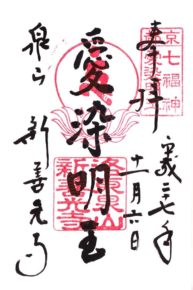 京七福神
奉拝
平成二十七年
十一月六日
愛染明王
洛東泉山
新善光寺
泉山 新善光寺